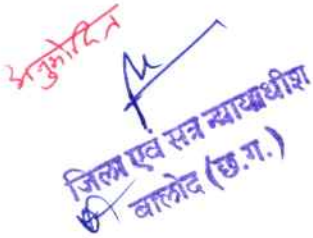 अनुमोदित
जिला एवं सत्र न्यायाधीश
बालोद (छ.ग.)